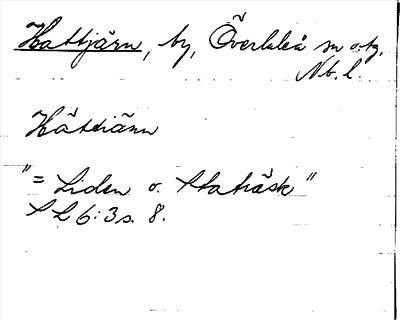 Hattjärn, by, Överluleå sn o. tg,
Nb. l.
Hättiänn
"= Liden o. Flaträsk"
SL 6:3 s. 8.